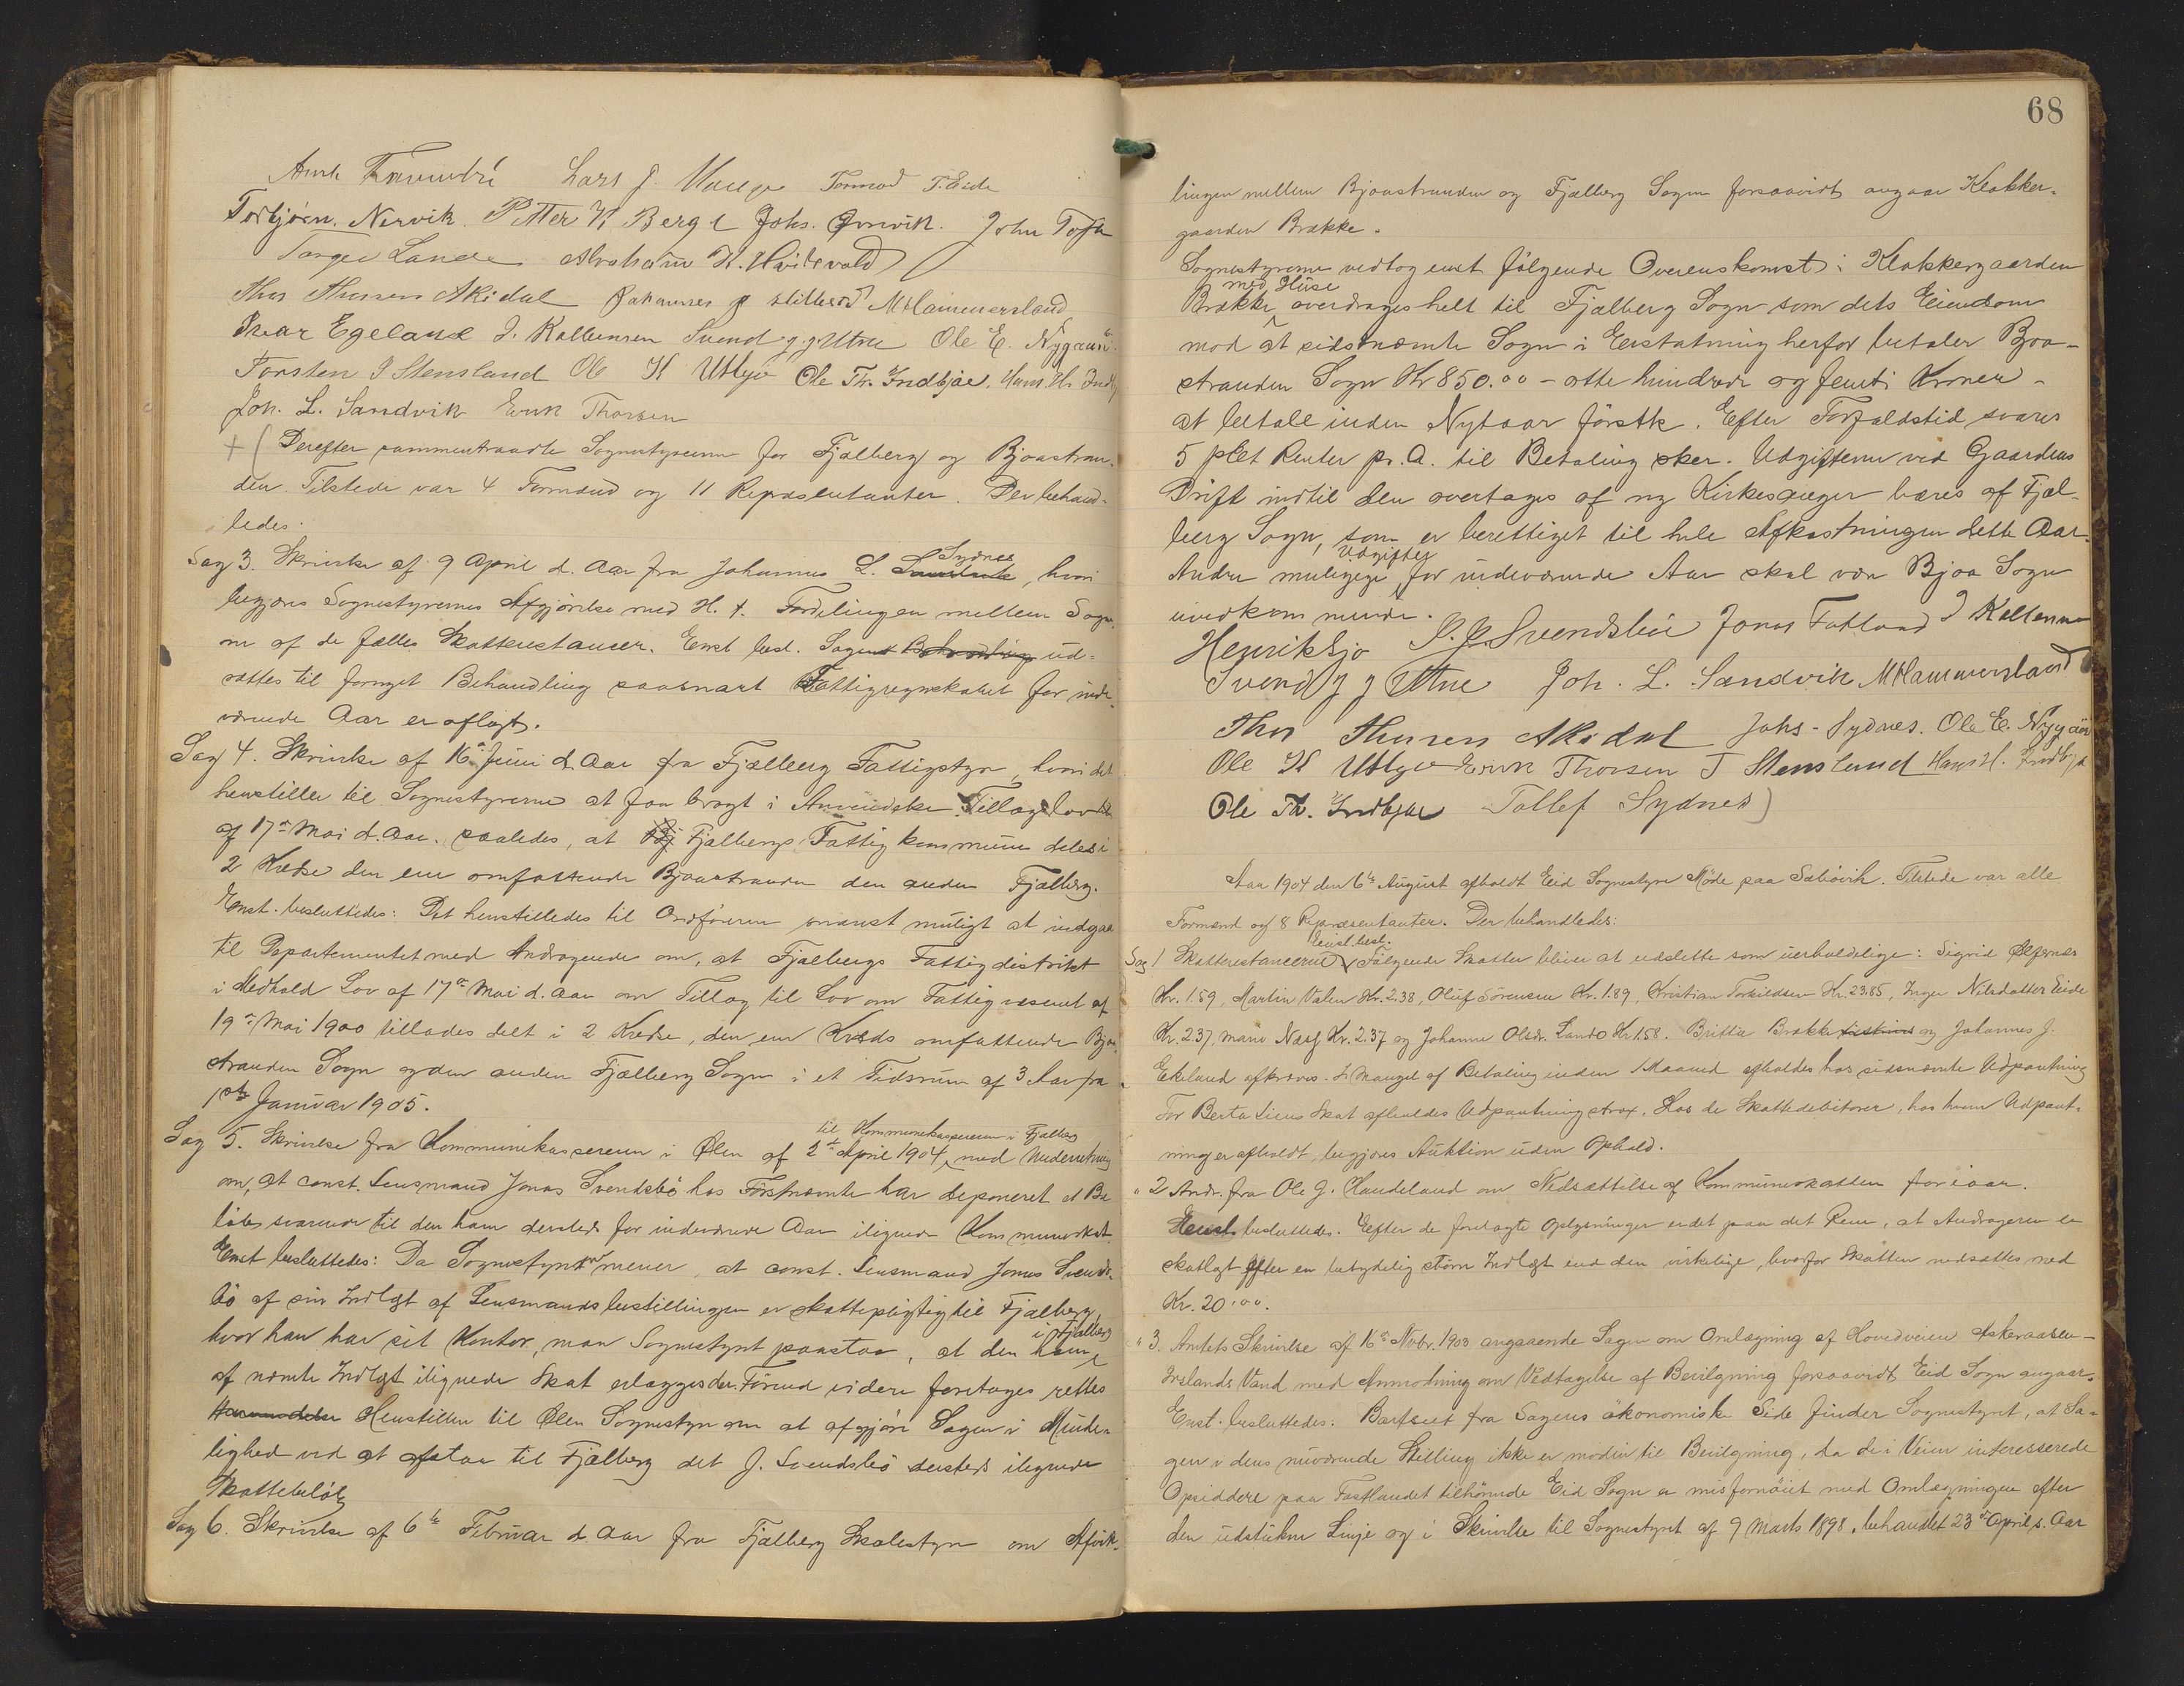 Lars J. Tormod T. Eide
Torbjørn. Nervik. Petter K Berge Johs. Ørnvik. John Tofte
Abraham H.
Thos Thorsen Akidal Johannes M Hammersland
Ivar Egeland J. Kallemsen Svend J J Utne Ole E. Nygaar
Torsten J Stensland Ole K Utbjo Ole Th. Indbjøe. Hans H.
Joh. L. Sandvik Erik Thorsen
+ ( Derefter sammentraadte Sognestyrerne for Fjælberg og Bjoastran-
den. Tilstede var 4 Formænd og 11 Repræsentanter. Der behand-
ledes:
Sag 3. Skrivelse af 9 April d. Aar fra Johannes L. Sydnes, hvori
begjæres Sognestyrernes Afgjørelse med H. t. Fordelingen mellem Sogne-
ne af de fælles Skatterestancer. Enst. besl. Sagen ud-
sættes til fornyet Behandling saasnart Fattigregnskabet for inde-
værende Aar er aflagt.
Sag 4. Skrivelse af 16de Juni d. Aar fra Fjælberg Fattigstyre, hvori det
henstiller til Sognestyrerne at faa bragt i Anvendelse Tillægslov
af 17de Mai d. Aar. saaledes, at Fjælbergs Fattigkommune deles i
2 Kredse den ene omfattende Bjoastranden den anden Fjælberg.
Enst. besluttedes: Det henstilledes til Ordføreren snarest muligt at indgaa
til Departementet med Andragende om, at Fjælbergs Fattigdistrikt
i Medhold Lov af 17de Mai d. Aar om Tillæg til Lov om Fattigvæsenet af
19de Mai 1900 tillades delt i 2 Kredse, den ene Kreds omfattende Bjoa-
stranden Sogn og den anden Fjælberg Sogn i et Tidsrum af 3 Aar fra
1ste Januar 1905.
til Kommunekassereren i Fjælberg
Sag 5. Skrivelse fra Kommunekassereren i Ølen af 2de April 1904, med Underretning
om, at const. Lensmand Jonas Svendsbø hos Førstnævnte har deponeret et Be-
løb svarende til den ham dersteds for indeværende Aar ilignede Kommuneskat.
Enst besluttedes: Da Sognestyret mener, at const. Lensmand Jonas Svends-
bø af sin Indtægt af Lensmandsbestillingen er skattepligtig til Fjælberg,
hvor han har sit Kontor, man Sognestyret paastaa, at den ham i Fjælberg
af nævnte Indtægt ilignede Skat erlægges der. Førend videre foretages rettes
Henstillen til Ølen Sognestyre om at afgjøre Sagen i Minde-
lighed ved at afstaa til Fjælberg det J. Svendsbø dersteds ilignede
Skattebeløb
Sag 6. Skrivelse af 6te Februar d. Aar fra Fjælberg Skolestyre om Afvik-
68
lingen mellem Bjoastranden og Fjælberg Sogne forsaavidt angaar Klokker-
gaarden Brække.
Sognestyrerne vedtog enst følgende Overenskomst: Klokkergaarden
Brække med Huse overdrages helt til Fjælberg Sogn som dets Eiendom
mod at sidstnævnte Sogn i Erstatning herfor betaler Bjoa-
stranden Sogn Kr 850.00 - otte hundrede og femti Kroner -
at betale inden Nytaar førstk. Efter Forfaldstid svares
5 pCt Renter pr. A. til Betaling sker. Udgifterne ved Gaardens
Drift indtil den overtages af ny Kirkesanger bæres af Fjæl-
berg Sogn, som er berettiget til hele Afkastningen dette Aar.
Andre mulige Udgifter for indeværende Aar skal være Bjoa Sogn
uvedkommende.
Henrik Sjo Svendsbøe Jonas Fatland J Kallemsen
Svend J J Utne Joh. L. Sandvik M Hammersland
Thos Thorsen Akidal Johs. Sydnes. Ole E. Nygaar
Ole K Utbjo Erik Thorsen T Stensland Hans H. Indbjo
Ole Th. Indbjoe Tollef Sydnes
Aar 1904 den 6te August afholdt Eid Sognestyre Møde paa Sæbøvik. Tilstede var alle
Formænd og 8 Repræsentanter. Der behandledes:
Sag 1 Skatterestancerne. Enst. besl. Følgende Skatter bliver at udslette som uerholdelige: Sigrid Ølfernæs
Kr. 1.59, Martin Valen Kr. 2.38, Oluf Sørensen Kr. 1.89, Kristian Torkildsen Kr. 23.85, Inger Nilsdatter Eide
Kr. 2.37, Marie Næss Kr. 2.37 og Johanne Olsdr. Lande Kr 1.58. Britta Brække og Johannes J.
Ekeland afkræves. I Mangel af Betaling inden 1 Maaned afholdes hos sidsnævnte Udpantning
For Berta Liens Skat afholdes Udpantning strax. Hos de Skattedebitorer, hos hvem Udpant-
ning er afholdt, begjæres Auktion uden Ophold.
" 2 Andr. fra Ole G. Handeland om Nedsættelse af Kommuneskatten for iaar.
Enst. besluttedes. Efter de foretagte Oplysninger er det paa det Rene, at Andrageren er
skatlagt efter en betydelig større Indtægt end den virkelige, hvorfor Skatten nedsættes med
Kr. 20.00.
" 3. Amtets Skrivelse af 16de Novbr. 1903 angaaende Sagen om Omlægning af Hovedveien Askeraasen-
Irslands Vand med Anmodning om Vedtagelse af Bevilgning forsaavidt Eid Sogn angaar.
Enst. besluttedes: Bortseet fra Sagens økonomiske Side finder Sognestyret, at Sa-
gen i dens nuværende Stilling ikke er moden til Bevilgning, da de i Veien interesserede
Opsiddere paa Fastlandet tilhørende Eid Sogn er misfornøiet med Omlægningen efter
den udstukne Linje og i Skrivelse til Sognestyret af 9 Marts 1898, behandlet 23de April s. Aar